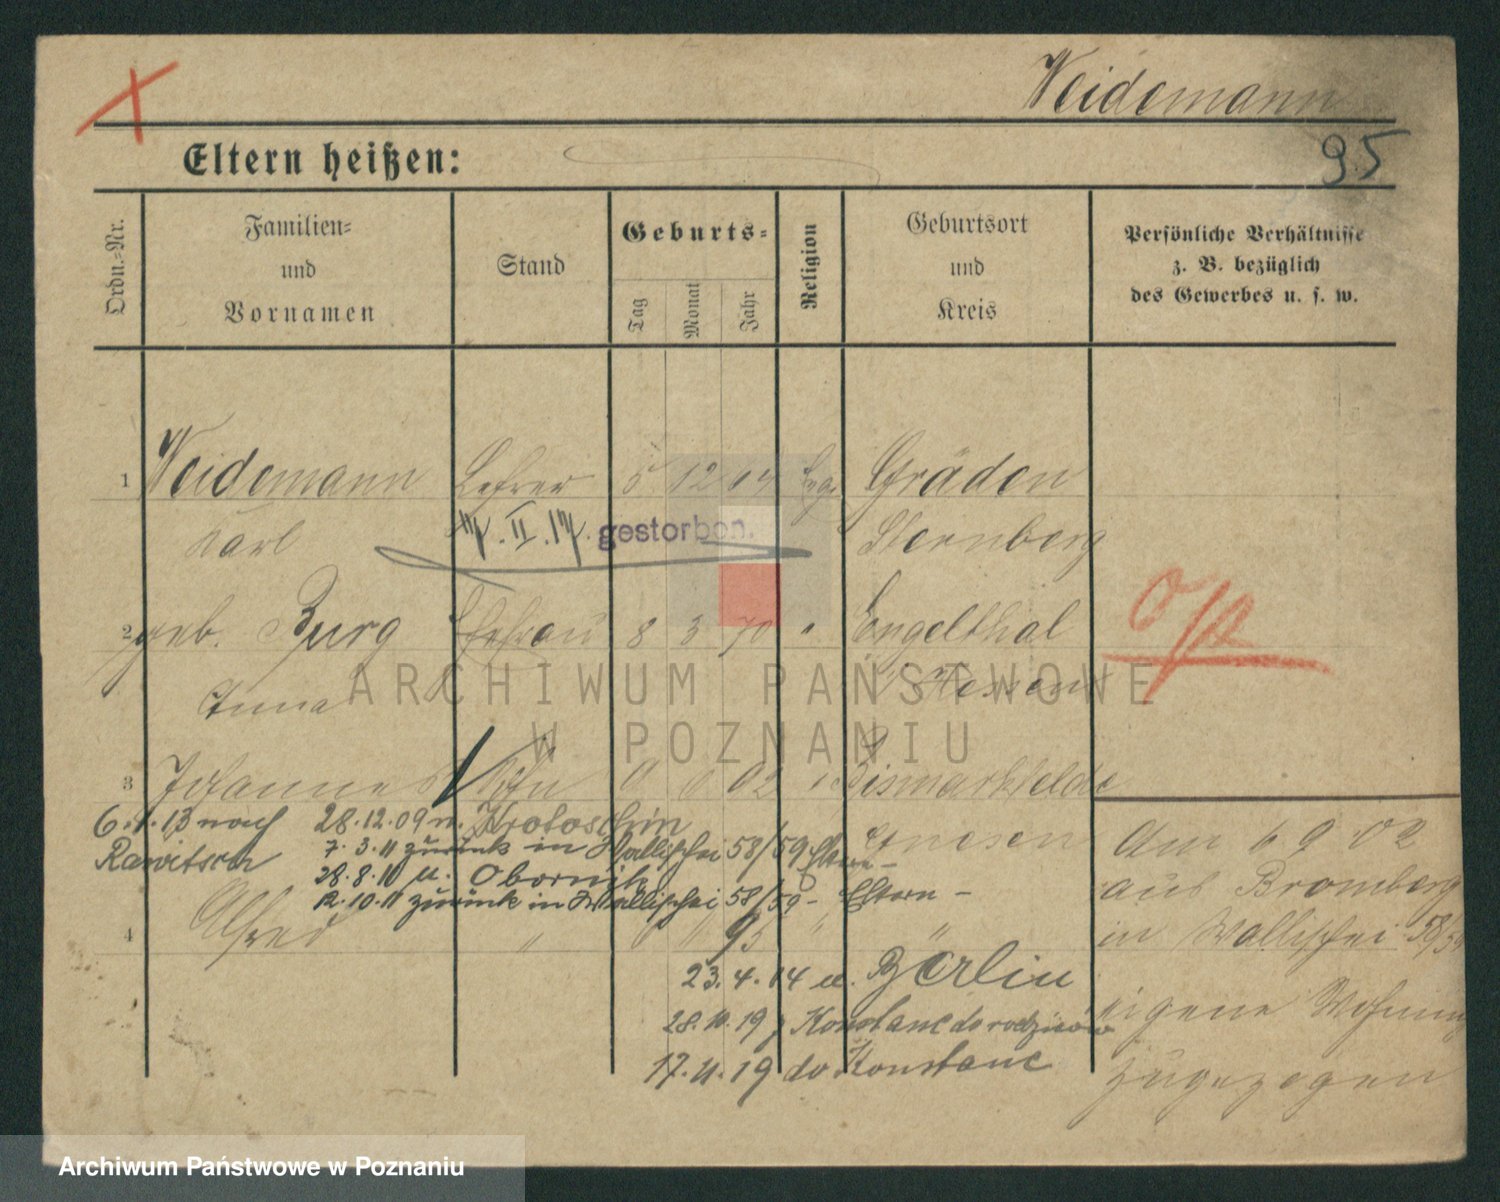 Weidemann
95
Eltern heißen:
Ordn.-Nr.
Familien-
und
Vornamen
Stand
Geburts-
Tag
Monat
Jahr
Religion
Geburtsort
und
Kreis
Persönliche Verhältnisse
z. B. bezüglich
des Gewerbes u. s. w.
1 Weidemann Lehrer 5 12 64 Gräden
Karl II.17. gestorben. Sternberg
2 geb. Burg Ehefrau 8 3 70 " Engelthal
Anna Hessen
3 Johannes Sohn 02 " Bismarkfelde
6.1.13 nach 28.12.09 n. Krotoschin Gnesen
Rawitsch 7.3.11 zurück in Wallischei 58/59 Eltern -
28.8.11 n. Obornik
12.10.11 zurück in Wallischei 58/59 - Eltern -
4 Alfred " " 95 " "
23.4.14 n. Berlin
28.10.19 z Konstanc do rodziców
17.11.19 do Konstanc
Am 6 9 02
aus Bromberg
in Wallischei 58/59
eigene Wohnung
zugezogen
ARCHIWUM PAŃSTWOWE
W POZNANIU
Archiwum Państwowe w Poznaniu